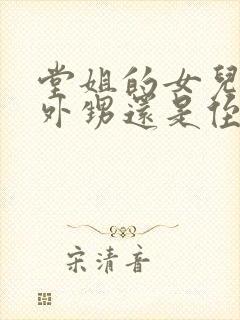 堂姐的女兒
外甥還是侄
宋清音